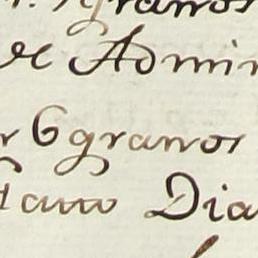 granos
de Admin
r 6 granos
Dia